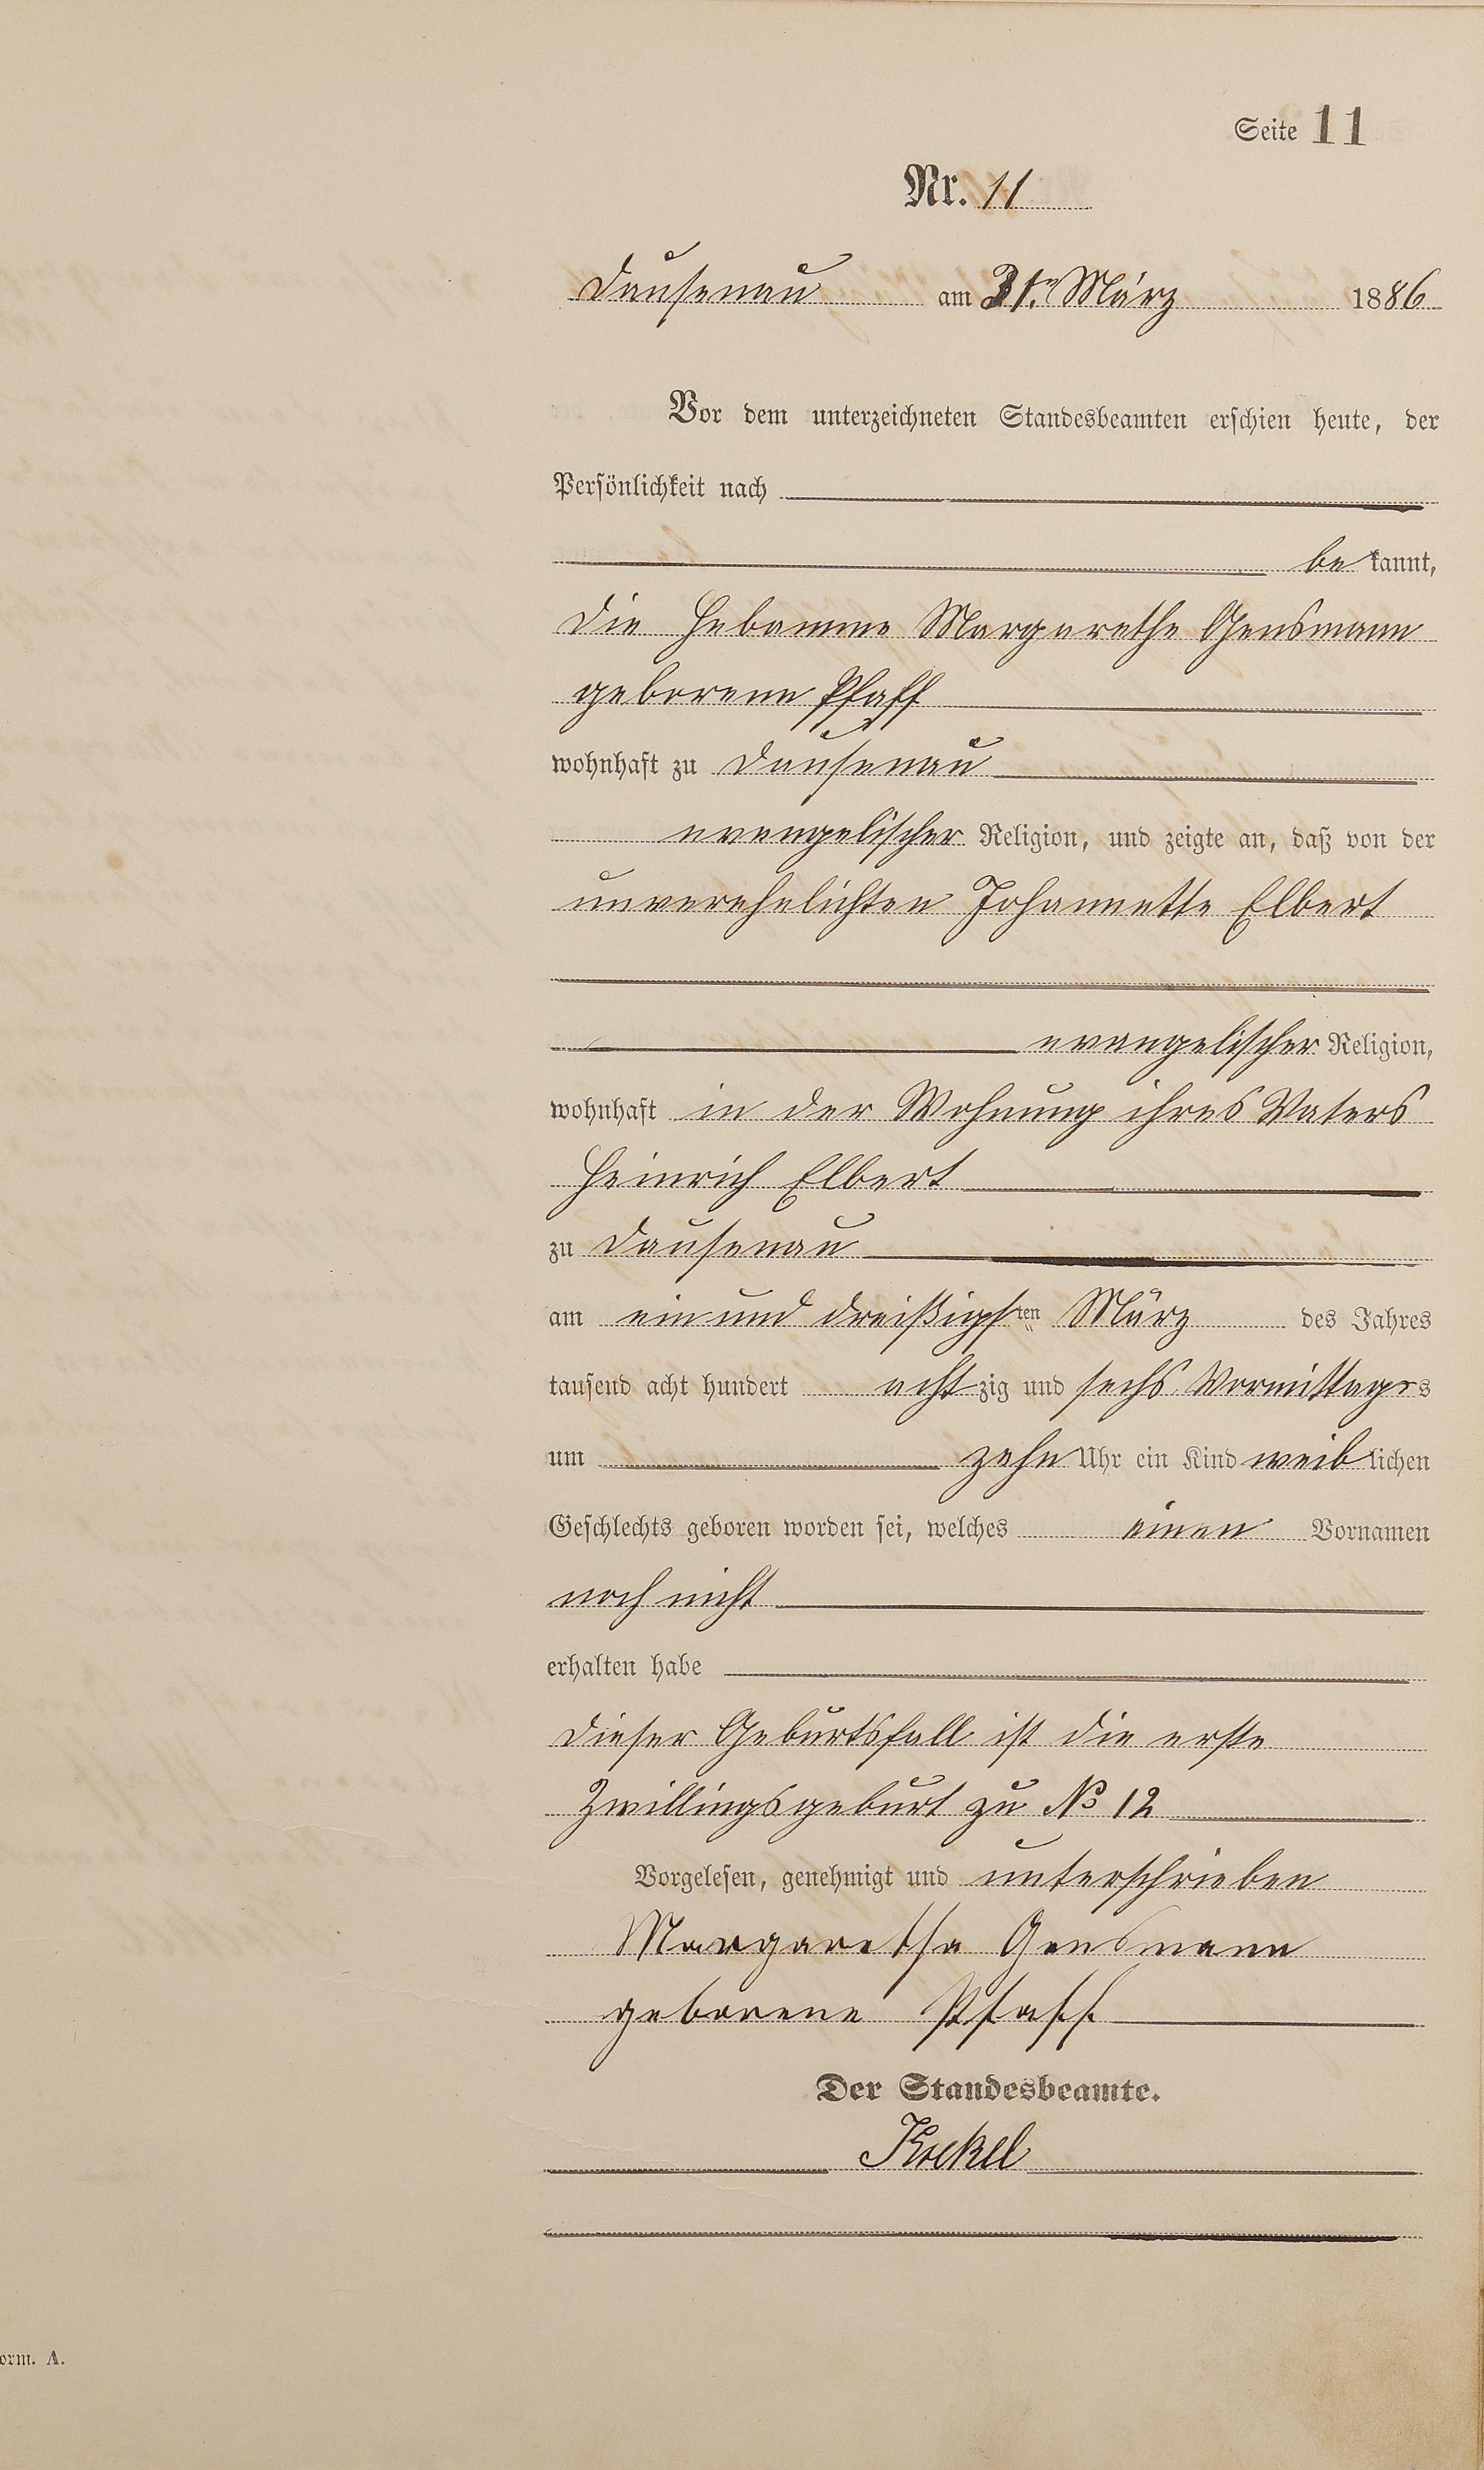 Seite 11
Nr. 11
Dausenau am 31ten März 1886
Vor dem unterzeichneten Standesbeamten erschien heute, der
Persönlichkeit nach
bekannt,
die Hebamme Margarethe Gensmann
geborene Pfaff
wohnhaft zu Dausenau
evangelischer Religion, und zeigte an, daß von der
unverehelichten Johannette Elbert
evangelischer Religion,
wohnhaft in der Wohnung ihres Vaters
Heinrich Elbert
zu Dausenau
am ein und dreißigsten März des Jahres
tausend acht hundert achtzig und sechs Vormittags
um zehn Uhr ein Kind weiblichen
Geschlechts geboren worden sei, welches einen Vornamen
noch nicht
erhalten habe
dieser Geburtsfall ist die erste
Zwillingsgeburt zu No 12
Vorgelesen, genehmigt und unterschrieben
Margaretha Gensmann
geborene Pfaff
Der Standesbeamte.
orm. A.